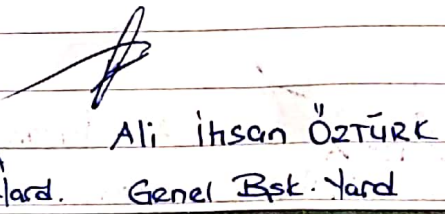 Ali İhsan ÖZTÜRK
Yard. Genel Bşk. Yard